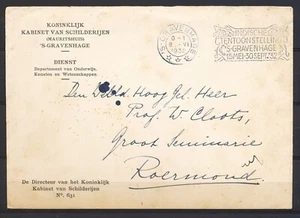 KONINKLIJK
KABINET VAN SCHILDERIJEN
(MAURITSHUIS)
'S-GRAVENHAGE
DIENST
Departement van Onderwijs,
Kunsten en Wetenschappen.
'S GRAVENHAGE
1932
TENTOONSTELLING
'S-GRAVENHAGE
15 MEI-30 SEPT. '32
Den Weled. Hoog Gel. Heer
Prof W. Cloots,
Groot Seminarie
Roermond
De Directeur van het Koninklijk
Kabinet van Schilderijen
Nº. 631